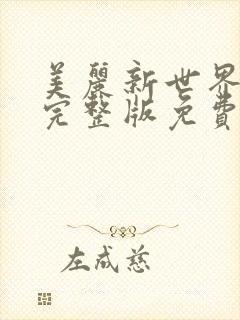 美麗新世界
完整版免費
左成慈